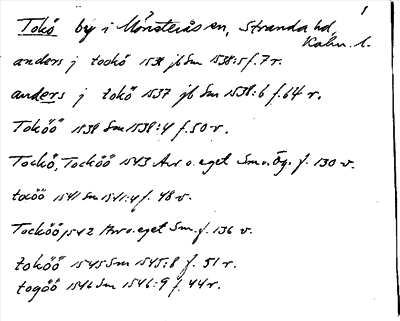 1
Tokö by i Mönsterås sn, Stranda hd,
Kalm. l.
anders j tookö 1538 jb Sm 1538:5 f. 7 r.
anders j tokö 1537 jb Sm 1538:6 f. 64 r.
Toköö 1538 Sm 1538:4 f. 50 r.
Tockö, Tocköö 1543 Arv o. eget Sm o. Ög. f. 130 v.
tocöö 1541 Sm 1541:4 f. 48 v.
Tocköö, 1542 Arv o. eget Sm. f. 136 v.
toköö 1545 Sm 1545:8 f. 51 r.
togöö 1546 Sm 1546:9 f. 44 r.